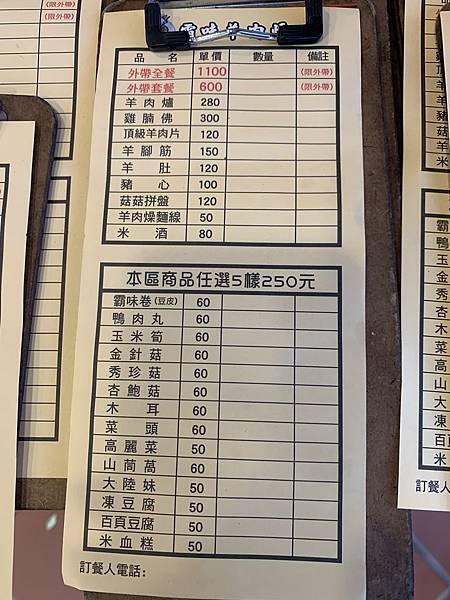 霸味羊肉爐
品 名 單價 數量 備註
外帶全餐 1100 (限外帶)
外帶套餐 600 (限外帶)
羊肉爐 280
雞腩佛 300
頂級羊肉片 120
羊腳筋 150
羊肚 120
豬心 100
菇菇拼盤 120
羊肉燥麵線 50
米酒 80
本區商品任選5樣250元
霸味卷(豆皮) 60
鴨肉丸 60
玉米筍 60
金針菇 60
秀珍菇 60
杏鮑菇 60
木耳 60
菜頭 60
高麗菜 50
山茼萵 60
大陸妹 50
凍豆腐 50
百頁豆腐 50
米血糕 50
訂餐人電話:
(限外帶)
(限外帶)
霸
鴨
玉
金
秀
杏
木
菜
高
山
大
凍
百頁
米
訂餐人